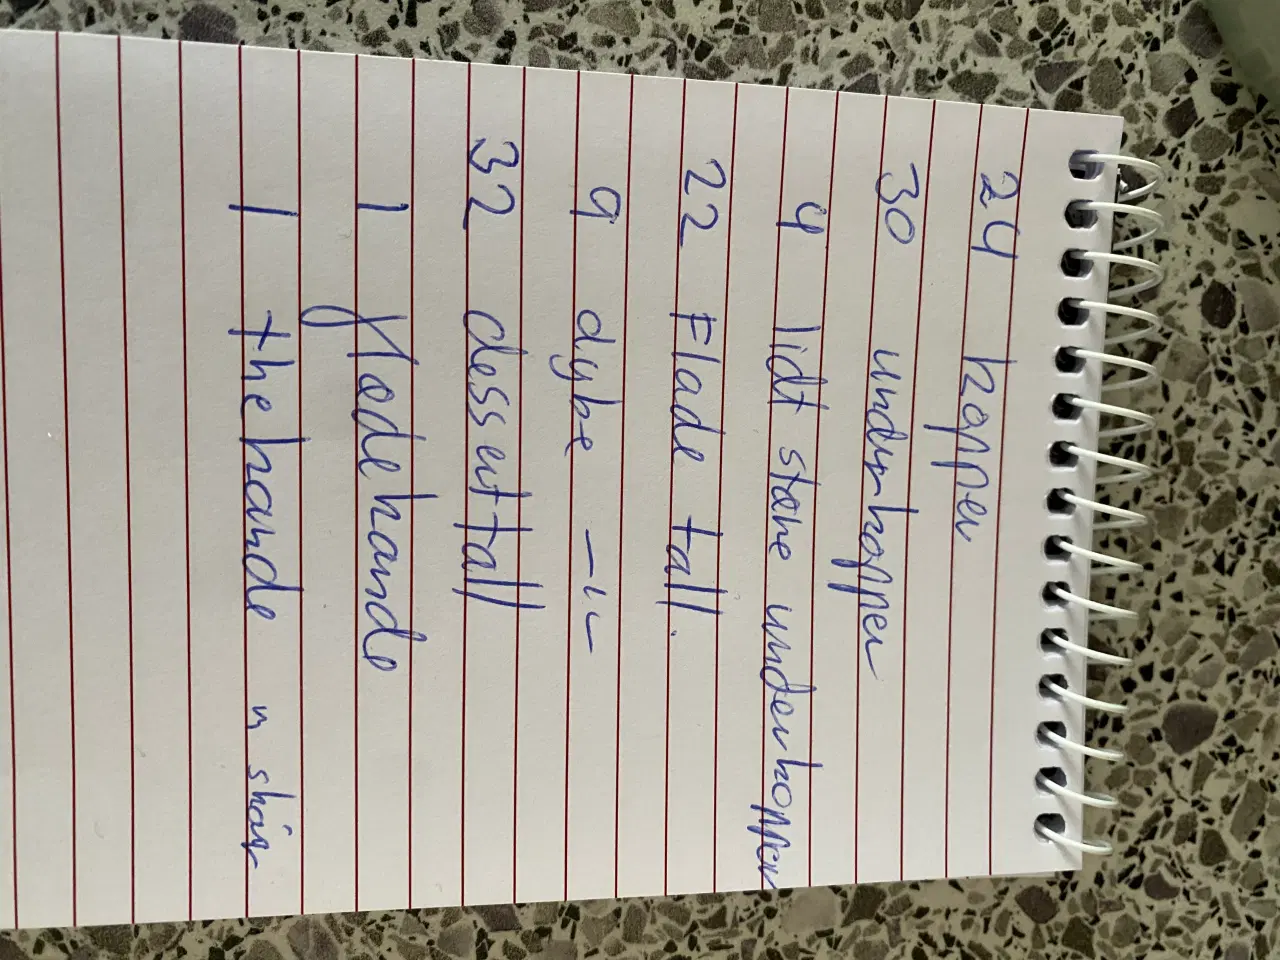 24 kopper
30 underkopper
4 lidt støre underkopper
22 Flade tall.
9 dybe -"-
32 desserttall
1 flødekande
1 thekande m skår